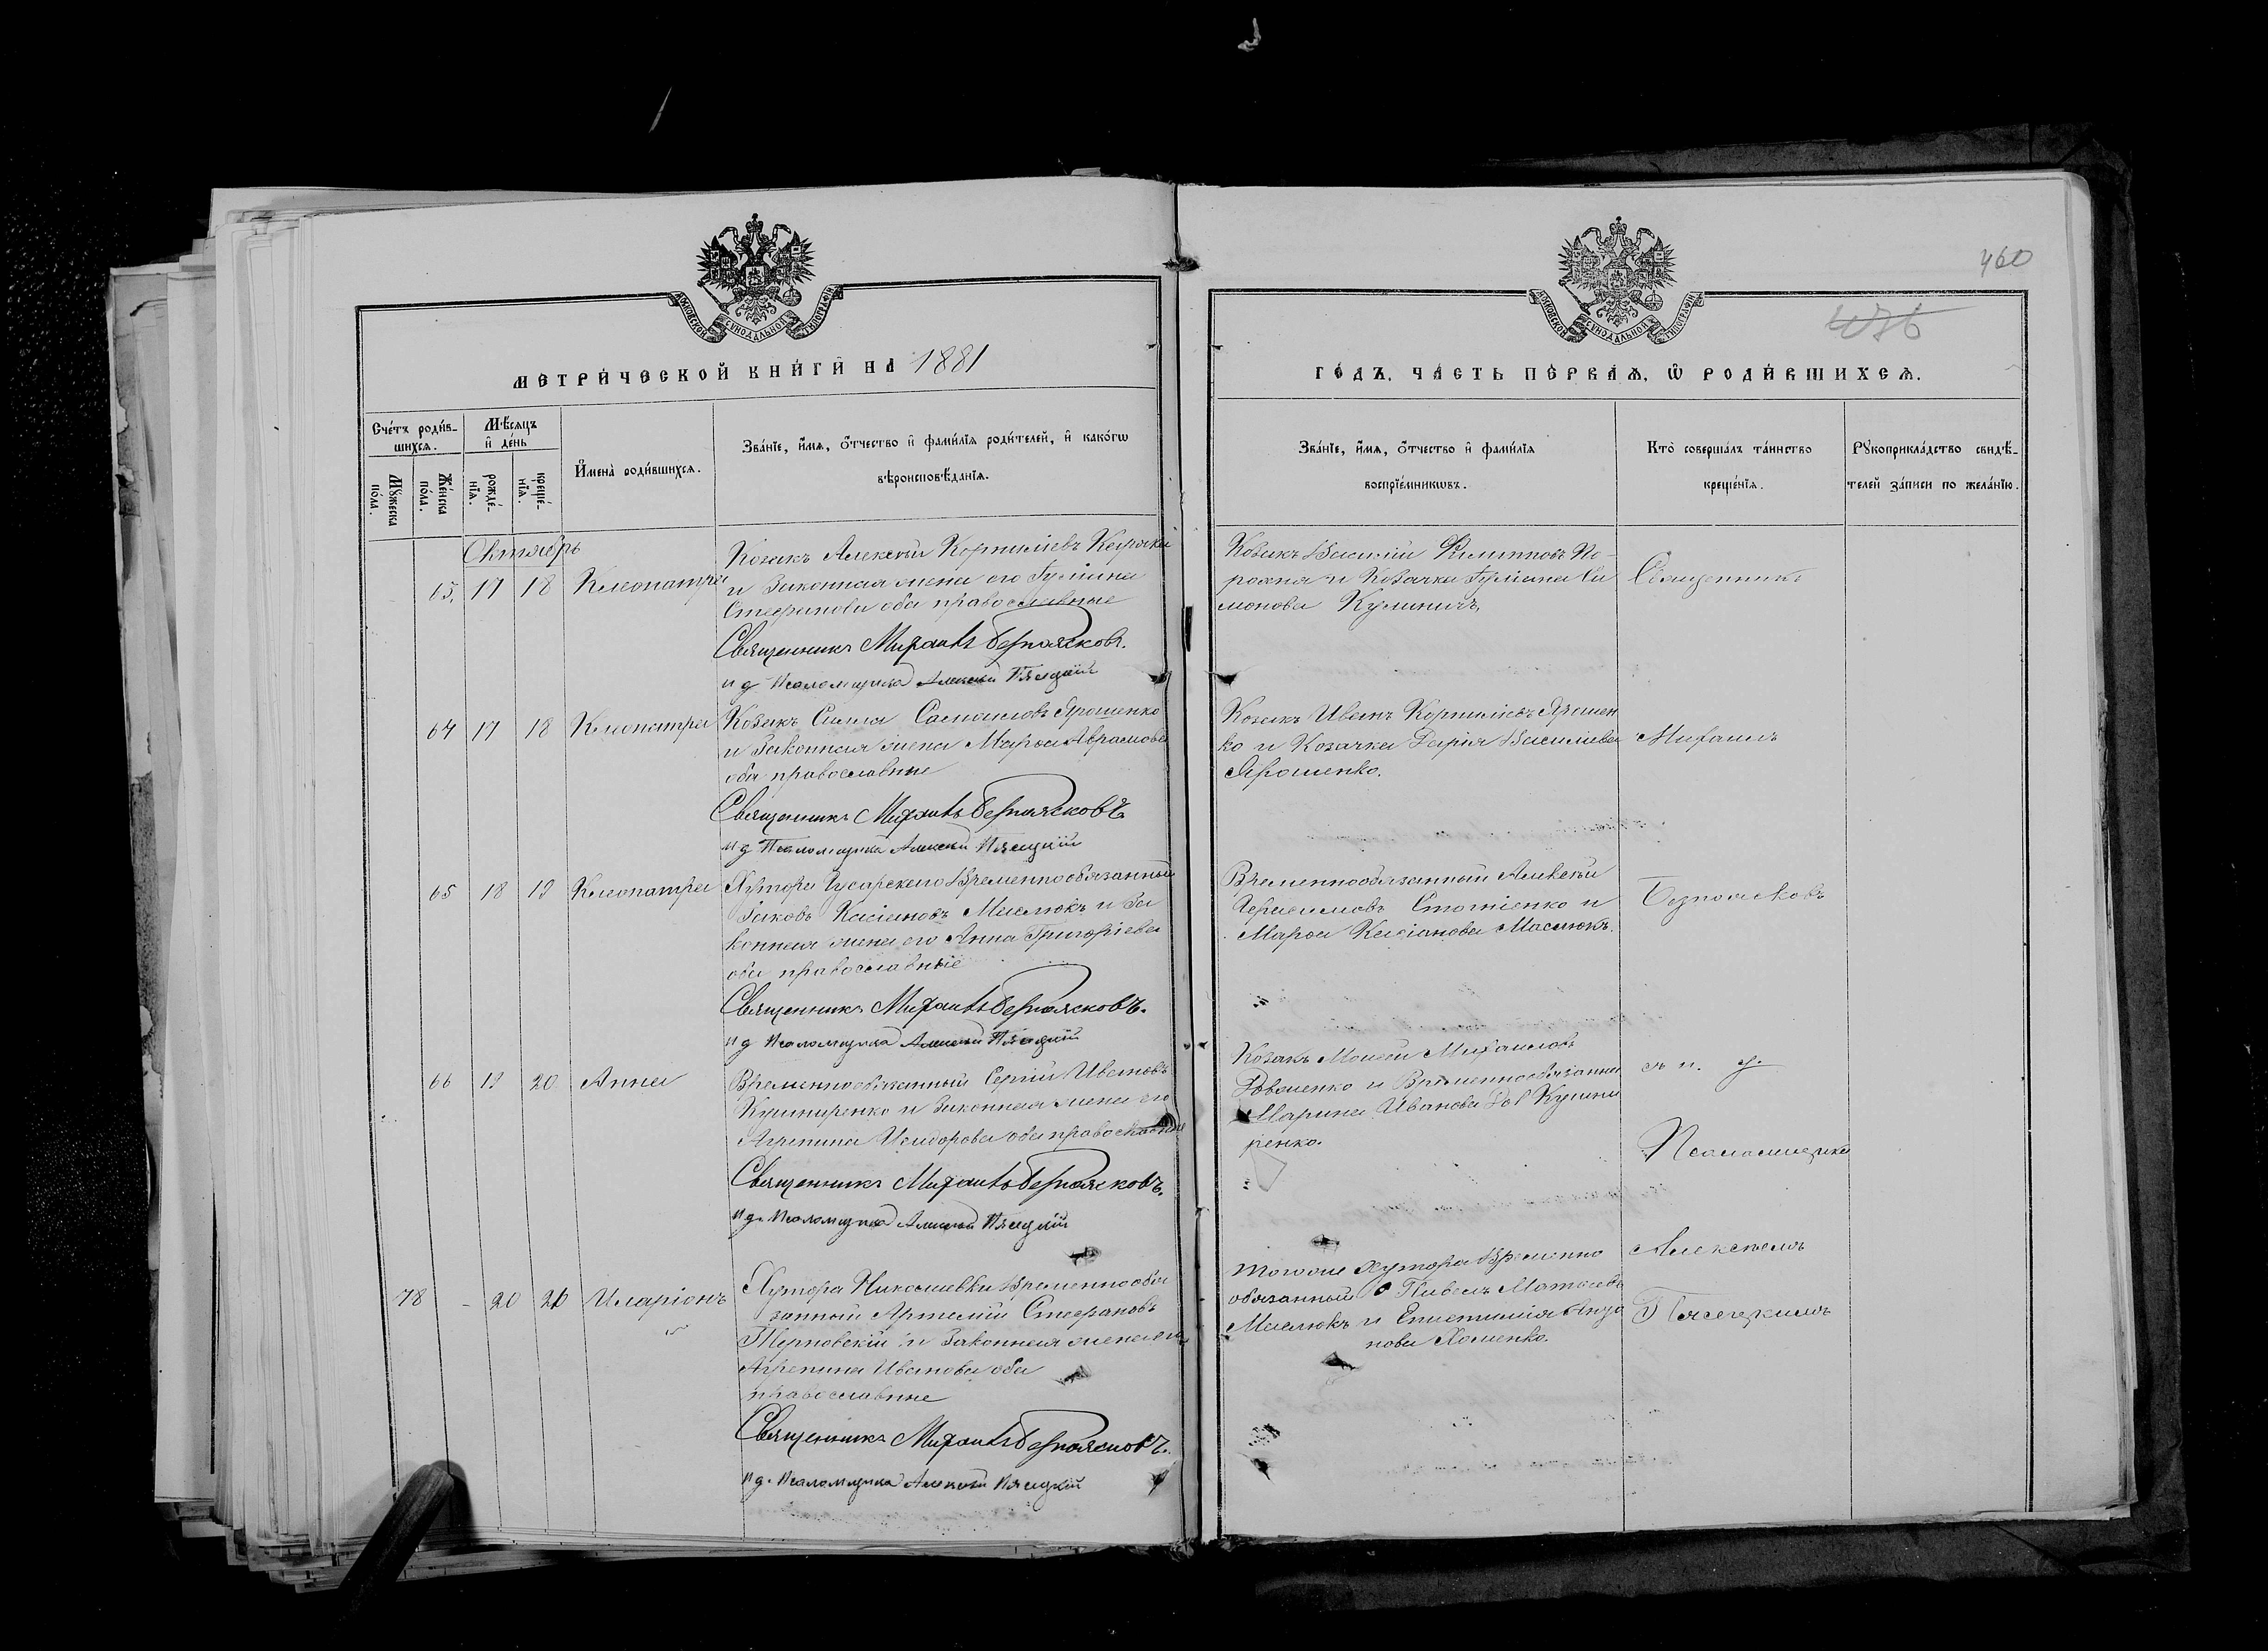 460
436
МОСКОВСКОЙ СѴНОДАЛЬНОЙ ТИПОГРАФІИ
МОСКОВСКОЙ СѴНОДАЛЬНОЙ ТИПОГРАФІИ
МЕТРИ́ЧЕСКОЙ КНИ́ГИ НА 1881
ГО́ДЪ, ЧА́СТЬ ПЕ́РВАѦ, Ѡ РОДИ́ВШИХСѦ.
Сче́тъ роди́в-
шихсѧ.
Мꙋ́жеска
по́ла.
Же́нска
по́ла.
Мѣ́сѧцъ
и де́нь
рожде́-
нїѧ.
креще́-
нїѧ.
Имена̀ роди́вшихсѧ.
Зва́нїе, и́мѧ, о́тчество и фами́лїѧ роди́телей, и како́гѡ
вѣроисповѣ́данїѧ.
Зва́нїе, и́мѧ, о́тчество и фами́лїѧ
воспрїе́мникѡвъ.
Кто̀ соверша́лъ та́инство
креще́нїѧ.
Рꙋкоприкла́дство свидѣ́-
телей за́писи по жела́нїю.
Октябрь
63. 17 18 Клеопатра
Козакъ Алексѣй Корнилiевъ
и Законная жена его Iулiана
Стефанова оба православные
Священникъ Михаилъ Безпоясковъ.
и д Псаломщика Алексѣй Пясецкiй
Козакъ Василiй Филипповъ По-
рохня и Козачка Iулiана Си
монова Кулиничъ,
Священникъ
64 17 18 Клеопатра
Козакъ Сила Самоиловъ Ярошенко
и Законная жена Марѳа Аврамова
оба православные
Священникъ Михаилъ Безпоясковъ
и д Псаломщика Алексѣй Пясецкiй
Козакъ Иванъ Корнилiевъ Ярошен
ко и Козачка Дарiя Василiева
Ярошенко.
Михаилъ
65 18 19 Клеопатра
Хутора Гусарского Временнообязанный
Iаковъ Касiановъ Маслюкъ и За
конная жена его Анна Григорiева
оба православные
Священникъ Михаилъ Безпоясковъ.
и д Псаломщика Алексѣй Пясецкiй
Временнообязанный Алексѣй
Герасимовъ и
Марѳа Касiанова Маслюкъ.
Безпоясковъ
66 19 20 Анна
Временнообязанный Сергiй Ивановъ
Кушниренко и Законная жена его
Агрепина Исидорова оба православные
Священникъ Михаилъ Безпоясковъ.
и д. Псаломщика Алексѣй Пясецкiй
Козакъ Моисей Михаиловъ
и Временнообязанная
Марина Иванова Кушни
ренко.
съ и. д.
Псаломщика
78 - 20 21 Иларiонъ
Хутора Николаевки Временнообя
занный Артемiй Стефановъ
Терновскiй и Законная жена его
Агрепина Иванова оба
православные
Священникъ Михаилъ Безпоясковъ.
и д. Псаломщика Алексѣй Пясецкiй
Тогоже Хутора Временно
обязанный Павелъ Матѳеевъ
Маслюкъ и Епистимiя
нова Хоменко.
Алексѣемъ
Пясецкимъ